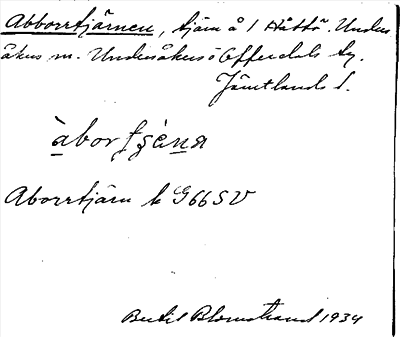 Abborrtjärnen, tjärn å 1 Håttö. Unders
åkers sn. Undersåkers o Offerdals tg.
Jämtlands l.
àborṭʂɛ̀nа
Aborrtjärn k G66SV
Bertil Blomstrand 1934